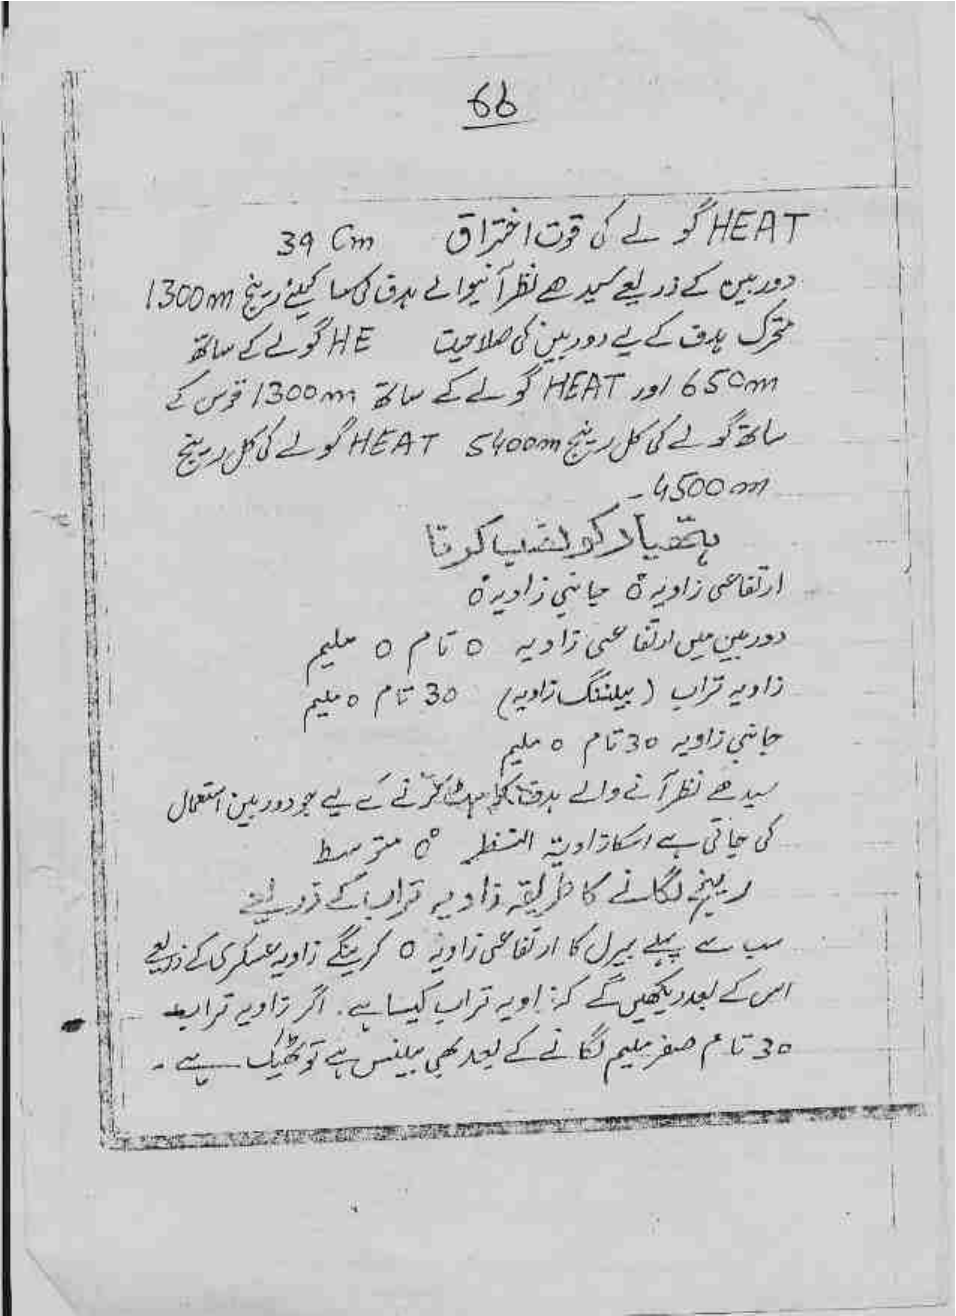 66
HEAT گولے کی قوت اختراق 39 Cm
دوربین کے ذریعے سیدھے نظر آنیوالے ہدف کی کیلئے رینج 1300m
متحرک ہدف کے لیے دوربین کی صلاحیت HE گولے کے ساتھ
650m اور HEAT گولے کے ساتھ 1300m قوس کے
ساتھ گولے کی کل رینج 5400m HEAT گولے کی کل رینج
4500m -
ہتھیار کو نصب کرنا
ارتفاعی زاویہ 0 جانبی زاویہ 0
دوربین میں ارتفاعی زاویہ 0 تام 0 ملیم
زاویہ تراب (بیلننگ زاویہ) 30 تام 0 ملیم
جانبی زاویہ 30 تام 0 ملیم
سیدھے نظر آنے والے ہدف کو ہٹ کرنے کے لیے جو دوربین استعمال
کی جاتی ہے اسکا زاویۃ النظر متوسط
رینج لگانے کا طریقہ زاویہ تراب کے ذریعے
سب سے پہلے بیرل کا ارتفاعی زاویہ 0 کرینگے زاویہ عسکری کے ذریعے
اس کے بعد دیکھیں گے کہ زاویہ تراب کیسا ہے۔ اگر زاویہ تراب
30 تام صفر ملیم لگانے کے بعد بھی بیلنس ہے تو ٹھیک ہے -